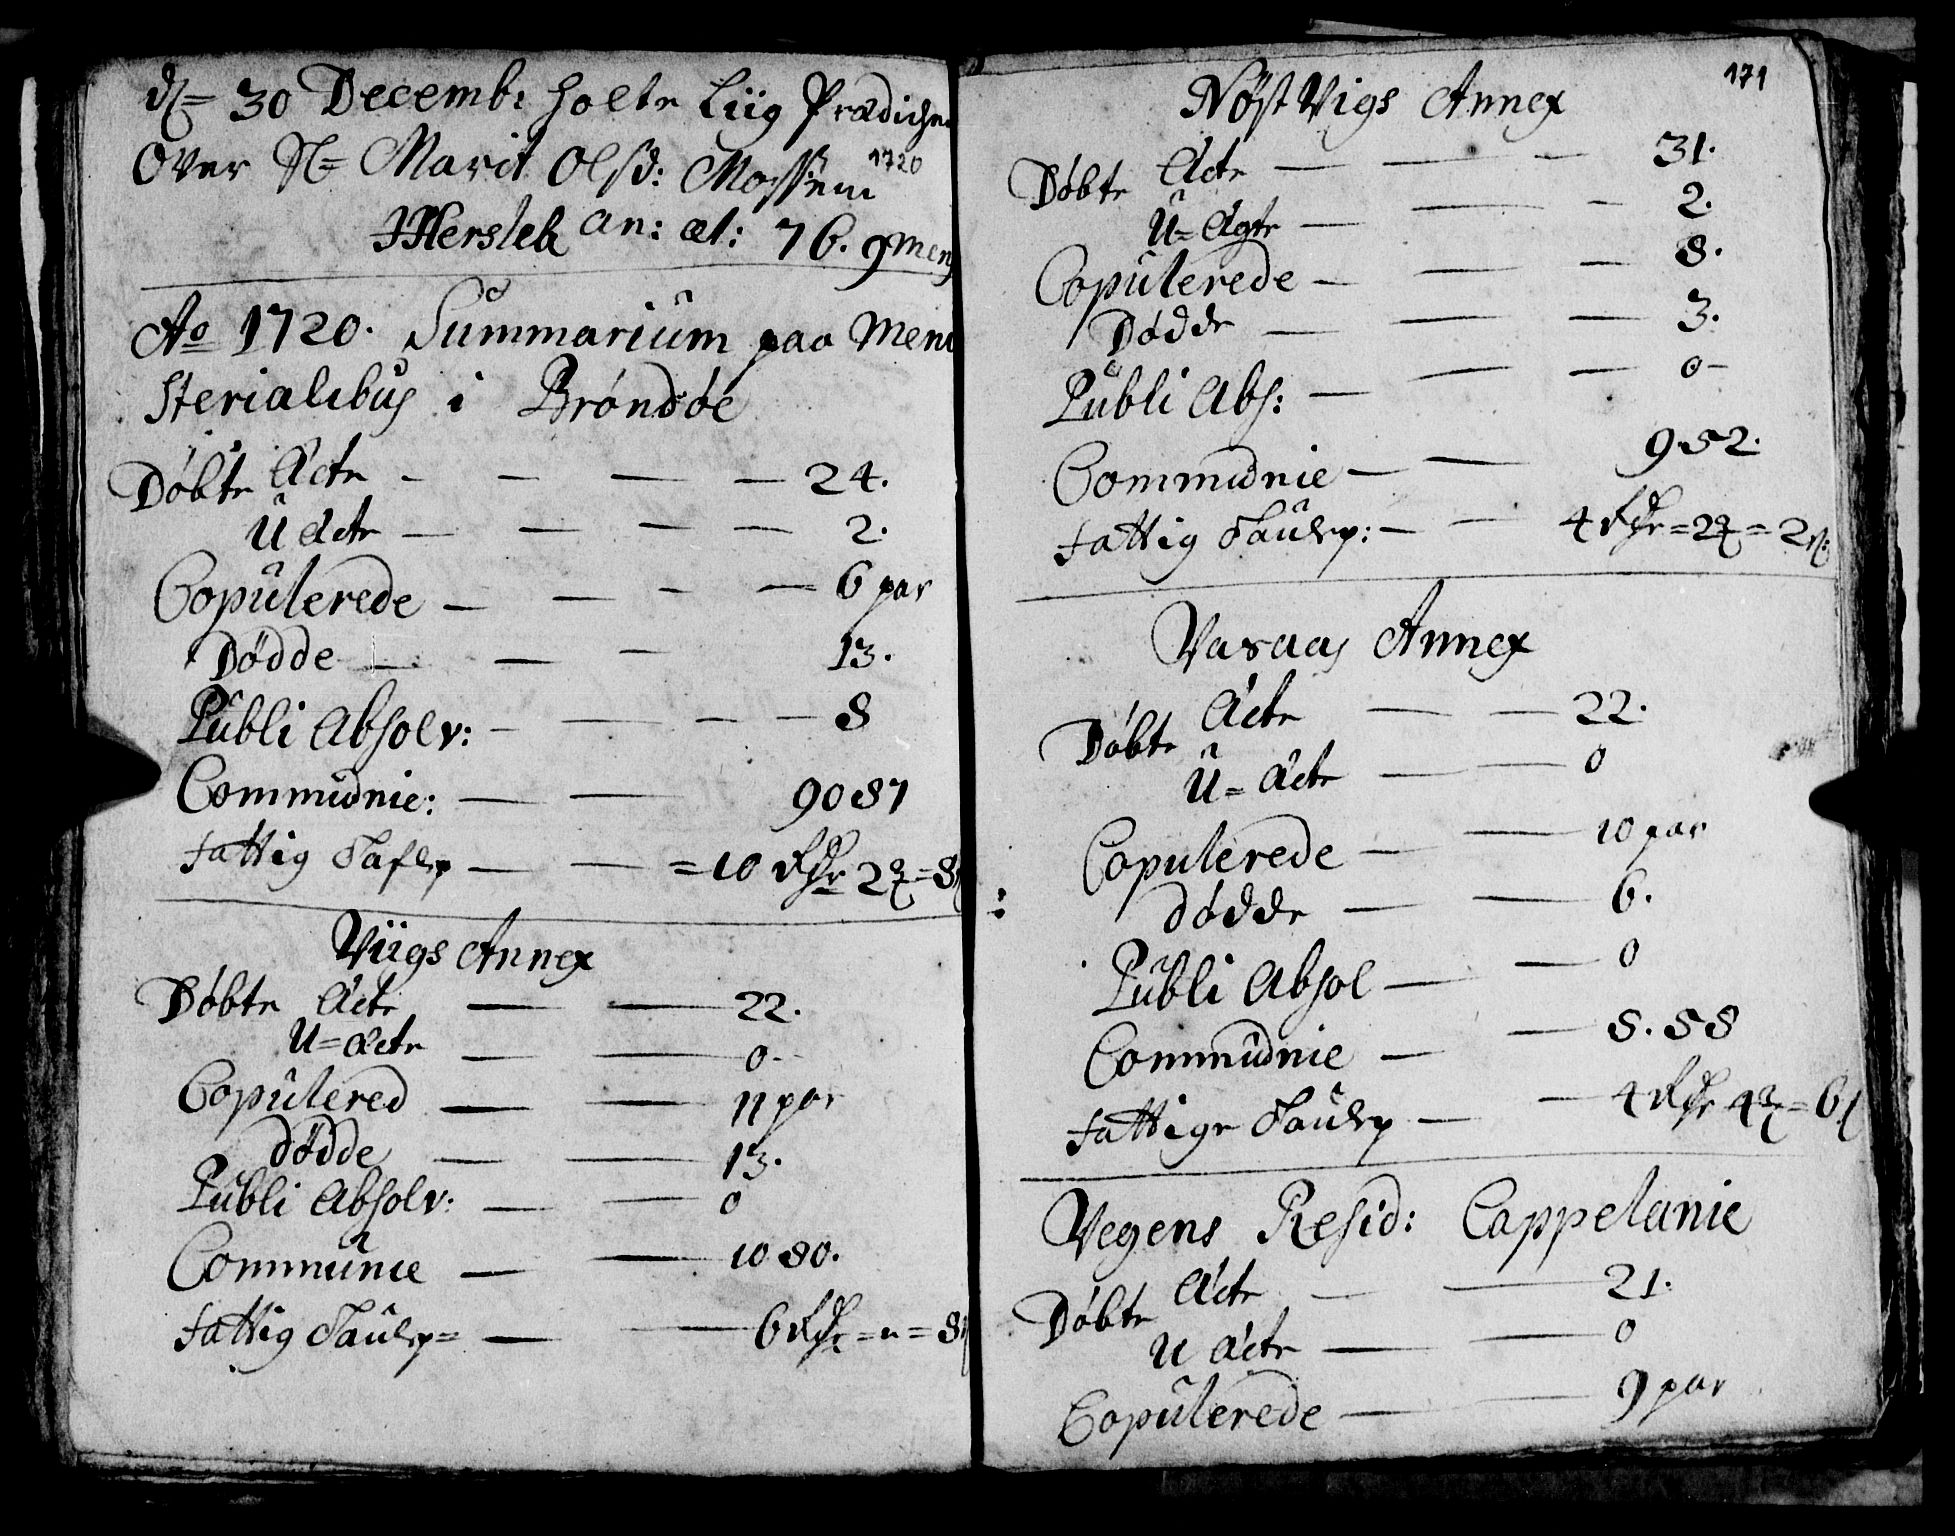 d= 30 Decemb: holte Liig Prædichen
Over Sl= Marit Olsd: Mossem
1720
Hersleb an: æt: 76. 9 Men
Ao 1720. Summarium paa Meni
sterialibus i Brønøe
Døbte Ecte - - - - 24.
U Ecte - - - - 2.
Copulerede - - - - 6 par
Dødde - - - 13.
Publi Absolv: - - - - 8
Communie: - - 9087
fattig Tafl - - = 10 Rdr 2 = 8
Viigs Annex
Døbte Ecte - - 22.
U= Ecte - - 0-
Copulered - - 11 par
dødde - - 13.
Publi Absolv: - - 0
Communie - - 1080.
fattig = - - 6 Rdr = " = 8
171
NøstVigs Annex
Døbte Ecte - - - 31.
U= Egte - - - 2.
Copulerede - - - 8.
Dødde - - - 3.
Publi Abs: - - - 0-
Communie - - 952.
fattig - - 4 Rdr = 2 = 2
Vasaas Annex
Døbte Ecte - - 22.
U= Ecte - - 0
Copulerede - - 10 par
dødde - - 6.
Publi Absol - - 0
Communie - - 8.58
fattige - - 4 Rdr 4 = 6
Vegens Resid: Cappelanie
Døbte Ecte - - 21.
U Ecte - - 0
Copulerede - - 9 par